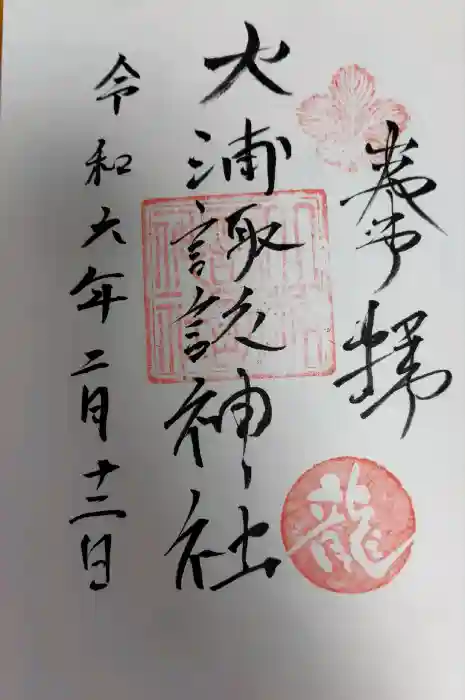 奉拝
龍
大浦諏訪神社
令和六年二月十三日